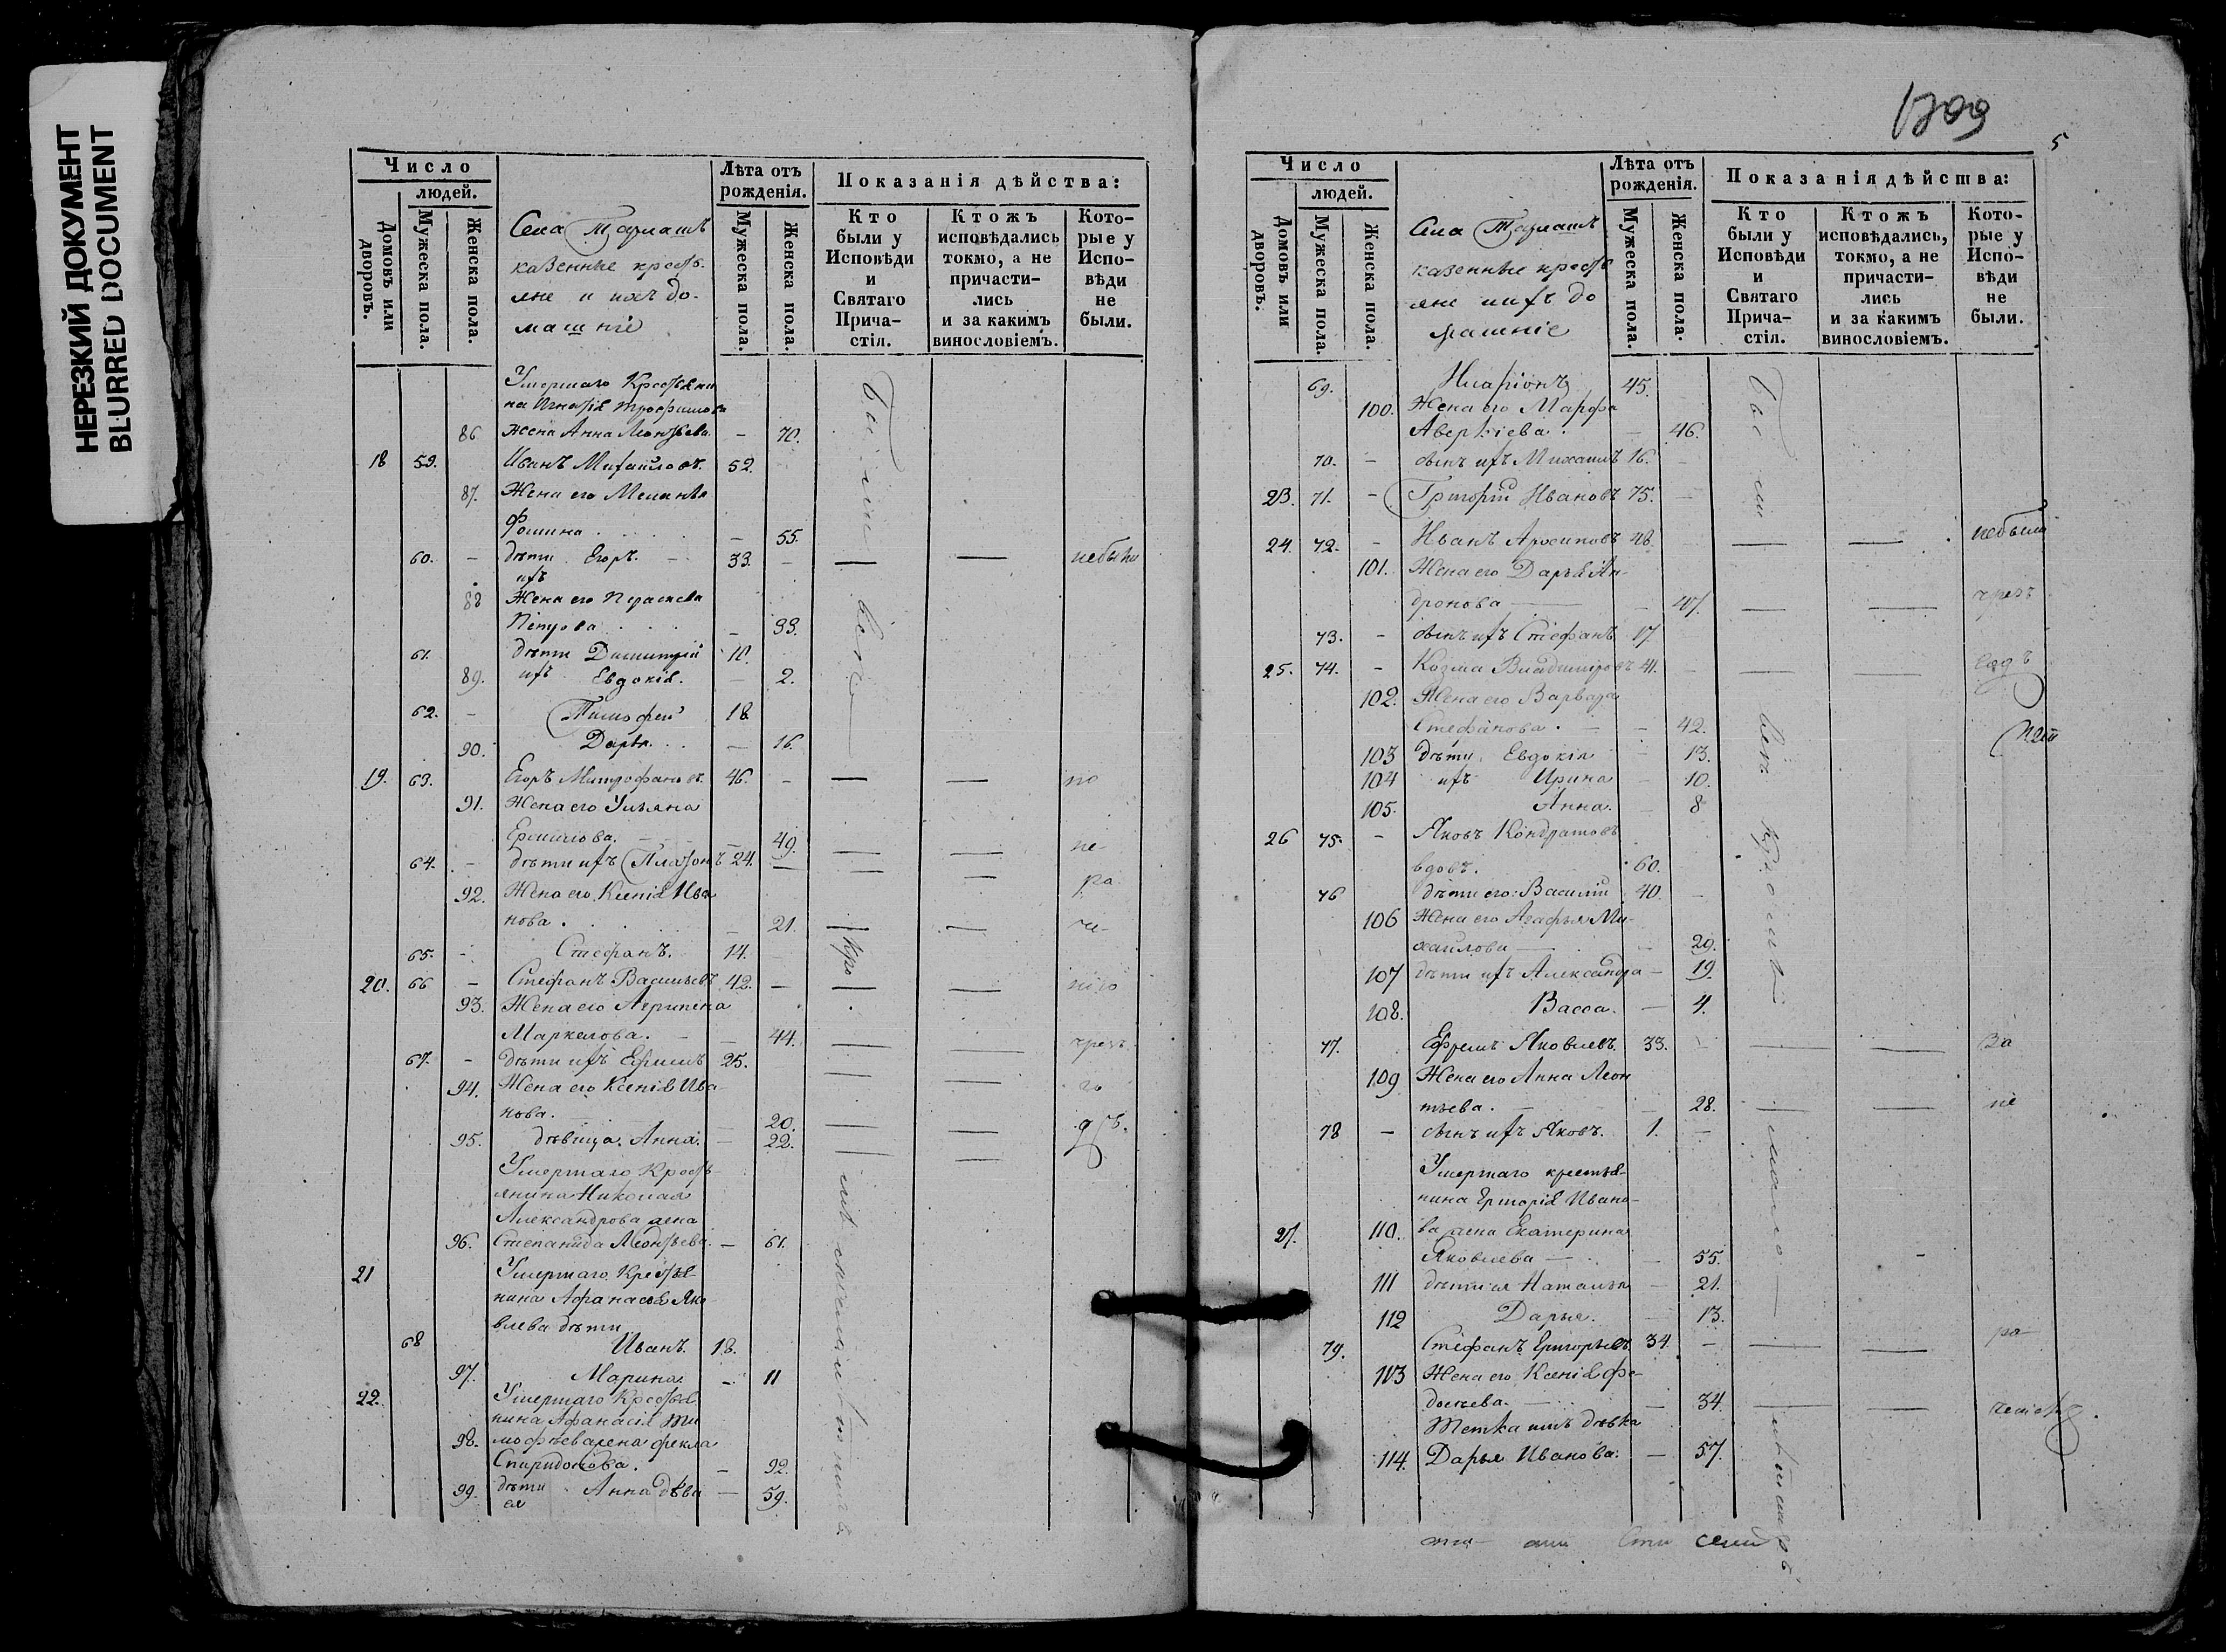 НЕРЕЗКИЙ ДОКУМЕНТ
BLURRED DOCUMENT
Число
людей.
Домовъ или дворовъ.
Мужеска пола.
Женска пола.
Села
казенные кресть-
яне и ихъ до-
машніе
Лѣта отъ рожденія.
Мужеска пола.
Женска пола.
Показанія дѣйства:
Кто были у Исповѣди и Святаго Прича-стія.
Ктожъ исповѣдались токмо, а не причасти-лись и за какимъ винословіемъ.
Кото-рые у Испо-вѣди не были.
Умершаго Крестьяни
на Игнатія Трофимова
86 жена Анна Леонтьева. — 70.
18 59. Иванъ Михайловъ. 52.
87. Жена его Меланья
Фомина — 55.
60. — дѣти Егоръ. — 33. — небыли
ихъ
88 Жена его Параскева
Петрова — 33.
61. дѣти Димитрій 10.
89. ихъ Евдокія. — 2.
62. — Тимофей 18
90. Дарья. — 16.
19. 63. Егоръ Митрофановъ. 46. — по
91. Жена его Ульяна
Ермилова. — 49. не
64. — дѣти ихъ Платонъ 24. —
92. Жена его Ксенія Ива ра
нова. — 21. че
65. — Стефанъ. 14.
20. 66 — Стефанъ Васильевъ 42. —
93. Жена его Агрипина
Маркелова. — 44. чрезъ
67. — дѣти ихъ Ефимъ 25.
94. Жена его Ксенія Ива го
нова. — 20. дъ.
95. дѣвица Анна. — 22.
Умершаго Кресть-
янина Николая
Александрова жена
96. Степанида Леонтьева. — 61.
21 Умершаго Крестья-
нина Афанасія Яко
влева дѣти
68 Иванъ. 18.
97. Марина. — 11
22. Умершаго Крестья
нина Афанасія Ти
98. мофѣева жена Фекла
Спиридонова. — 92.
99. дѣти Анна дѣва — 59.
ея
Были
1209
5
Число
людей.
Домовъ или дворовъ.
Мужеска пола.
Женска пола.
Села
казенные кресть
яне ихъ до
машніе
Лѣта отъ рожденія.
Мужеска пола.
Женска пола.
Показанія дѣйства:
Кто были у Исповѣди и Святаго Прича-стія.
Ктожъ исповѣдались, токмо, а не причасти-лись и за какимъ винословіемъ.
Кото-рые у Испо-вѣди не были.
69. Иларіонъ 45.
100. Жена его Марфа
Аверкіева. — 46.
70. — сынъ ихъ Михаилъ 16. —
23. 71. — Григорій Ивановъ 75. —
24. 72. — Иванъ Архиповъ 48. небыли
101. Жена его Дарья Ан-
дронова — 47. чрезъ
73. — сынъ ихъ Стефанъ 17.
25. 74. — Козма Владиміровъ 41.
102. Жена его Варвара
Стефанова. — 42.
103 дѣти Евдокія 13.
104 ихъ Ирина 10.
105. Анна. 8
26 75. — Яковъ Кондратовъ
вдовъ. 60.
76 дѣти его: Василій 40.
106 Жена его Агафья Ми-
хайлова — 29.
107 дѣти ихъ Александра — 19.
108. Васса. — 4.
77. Ефремъ Яковлевъ. 33. — за
109 Жена его Анна Леон
тьева. — 28. не
78 — сынъ ихъ Яковъ. 1. —
Умершаго крестья-
нина Григорія Ивано-
27. 110. ва жена Екатерина
Яковлева — 55.
111 дѣти ея Наталья — 21.
112 Дарья. — 13.
79. Стефанъ Григорьевъ 34. — ра
113 Жена его Ксенія Фе-
досѣева. — 34.
Тетка имъ дѣвка
114. Дарья Иванова. — 57.
Были